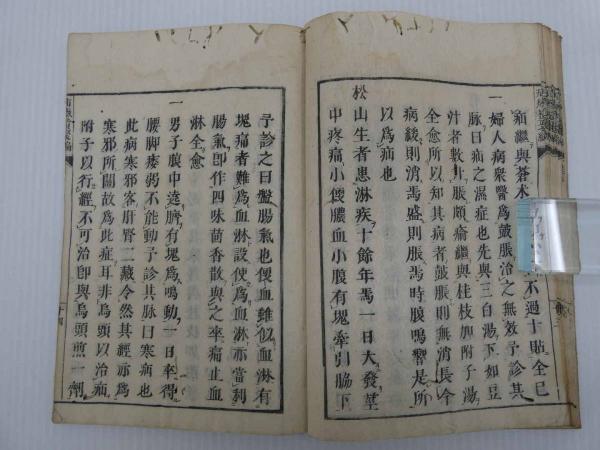 頹繼與蒼朮 不過十貼全已
一婦人病衆醫爲皷脹治之無效予診其
脉日病之濕症也先與三白湯下如豆
汁者數升脹頗瘉繼與桂枝加附子湯
全愈所以知其病者皷脹則無消長今
病後則消焉盛則脹焉時腹鳴響是所
以爲病也
松山生者患淋疾十餘年焉一日大發莖
中疼痛小便膿血小腹有塊牽引脇下
予診之曰盤腸氣也便血雖似血淋有
塊痛者難爲血淋設使爲血淋亦當利
腸氣卽作四味茴香散與之卒痛止血
淋全愈
一男子腹中遶臍有塊爲鳴動一日卒得
腰脚痿弱不能動予診其脉曰寒病也
此病寒邪客肝腎二藏令然其經亦爲
寒邪所閉故爲此症耳非烏頭以治病
附子以行經不可治卽與烏頭煎一劑
十四